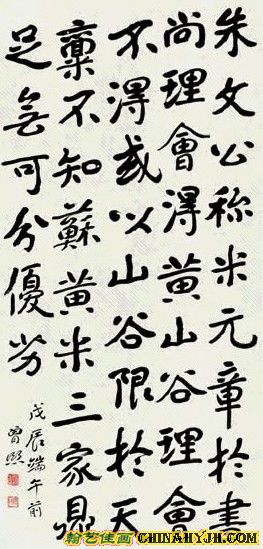 朱文公称米元章於書
尚理會得黃山谷理會
不得或以山谷限於天
稟不知蘇黃米三家鼎
足無可分優劣
戊辰端午前
曾熙
翰艺佳画 CHINAHYJH.COM